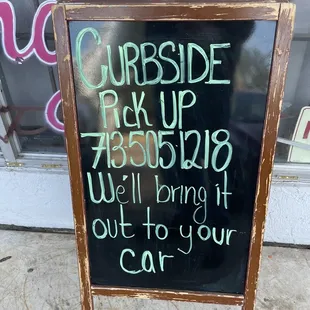 CURBSIDE
Pick UP
713.505.1218
We'll bring it
out to your
car